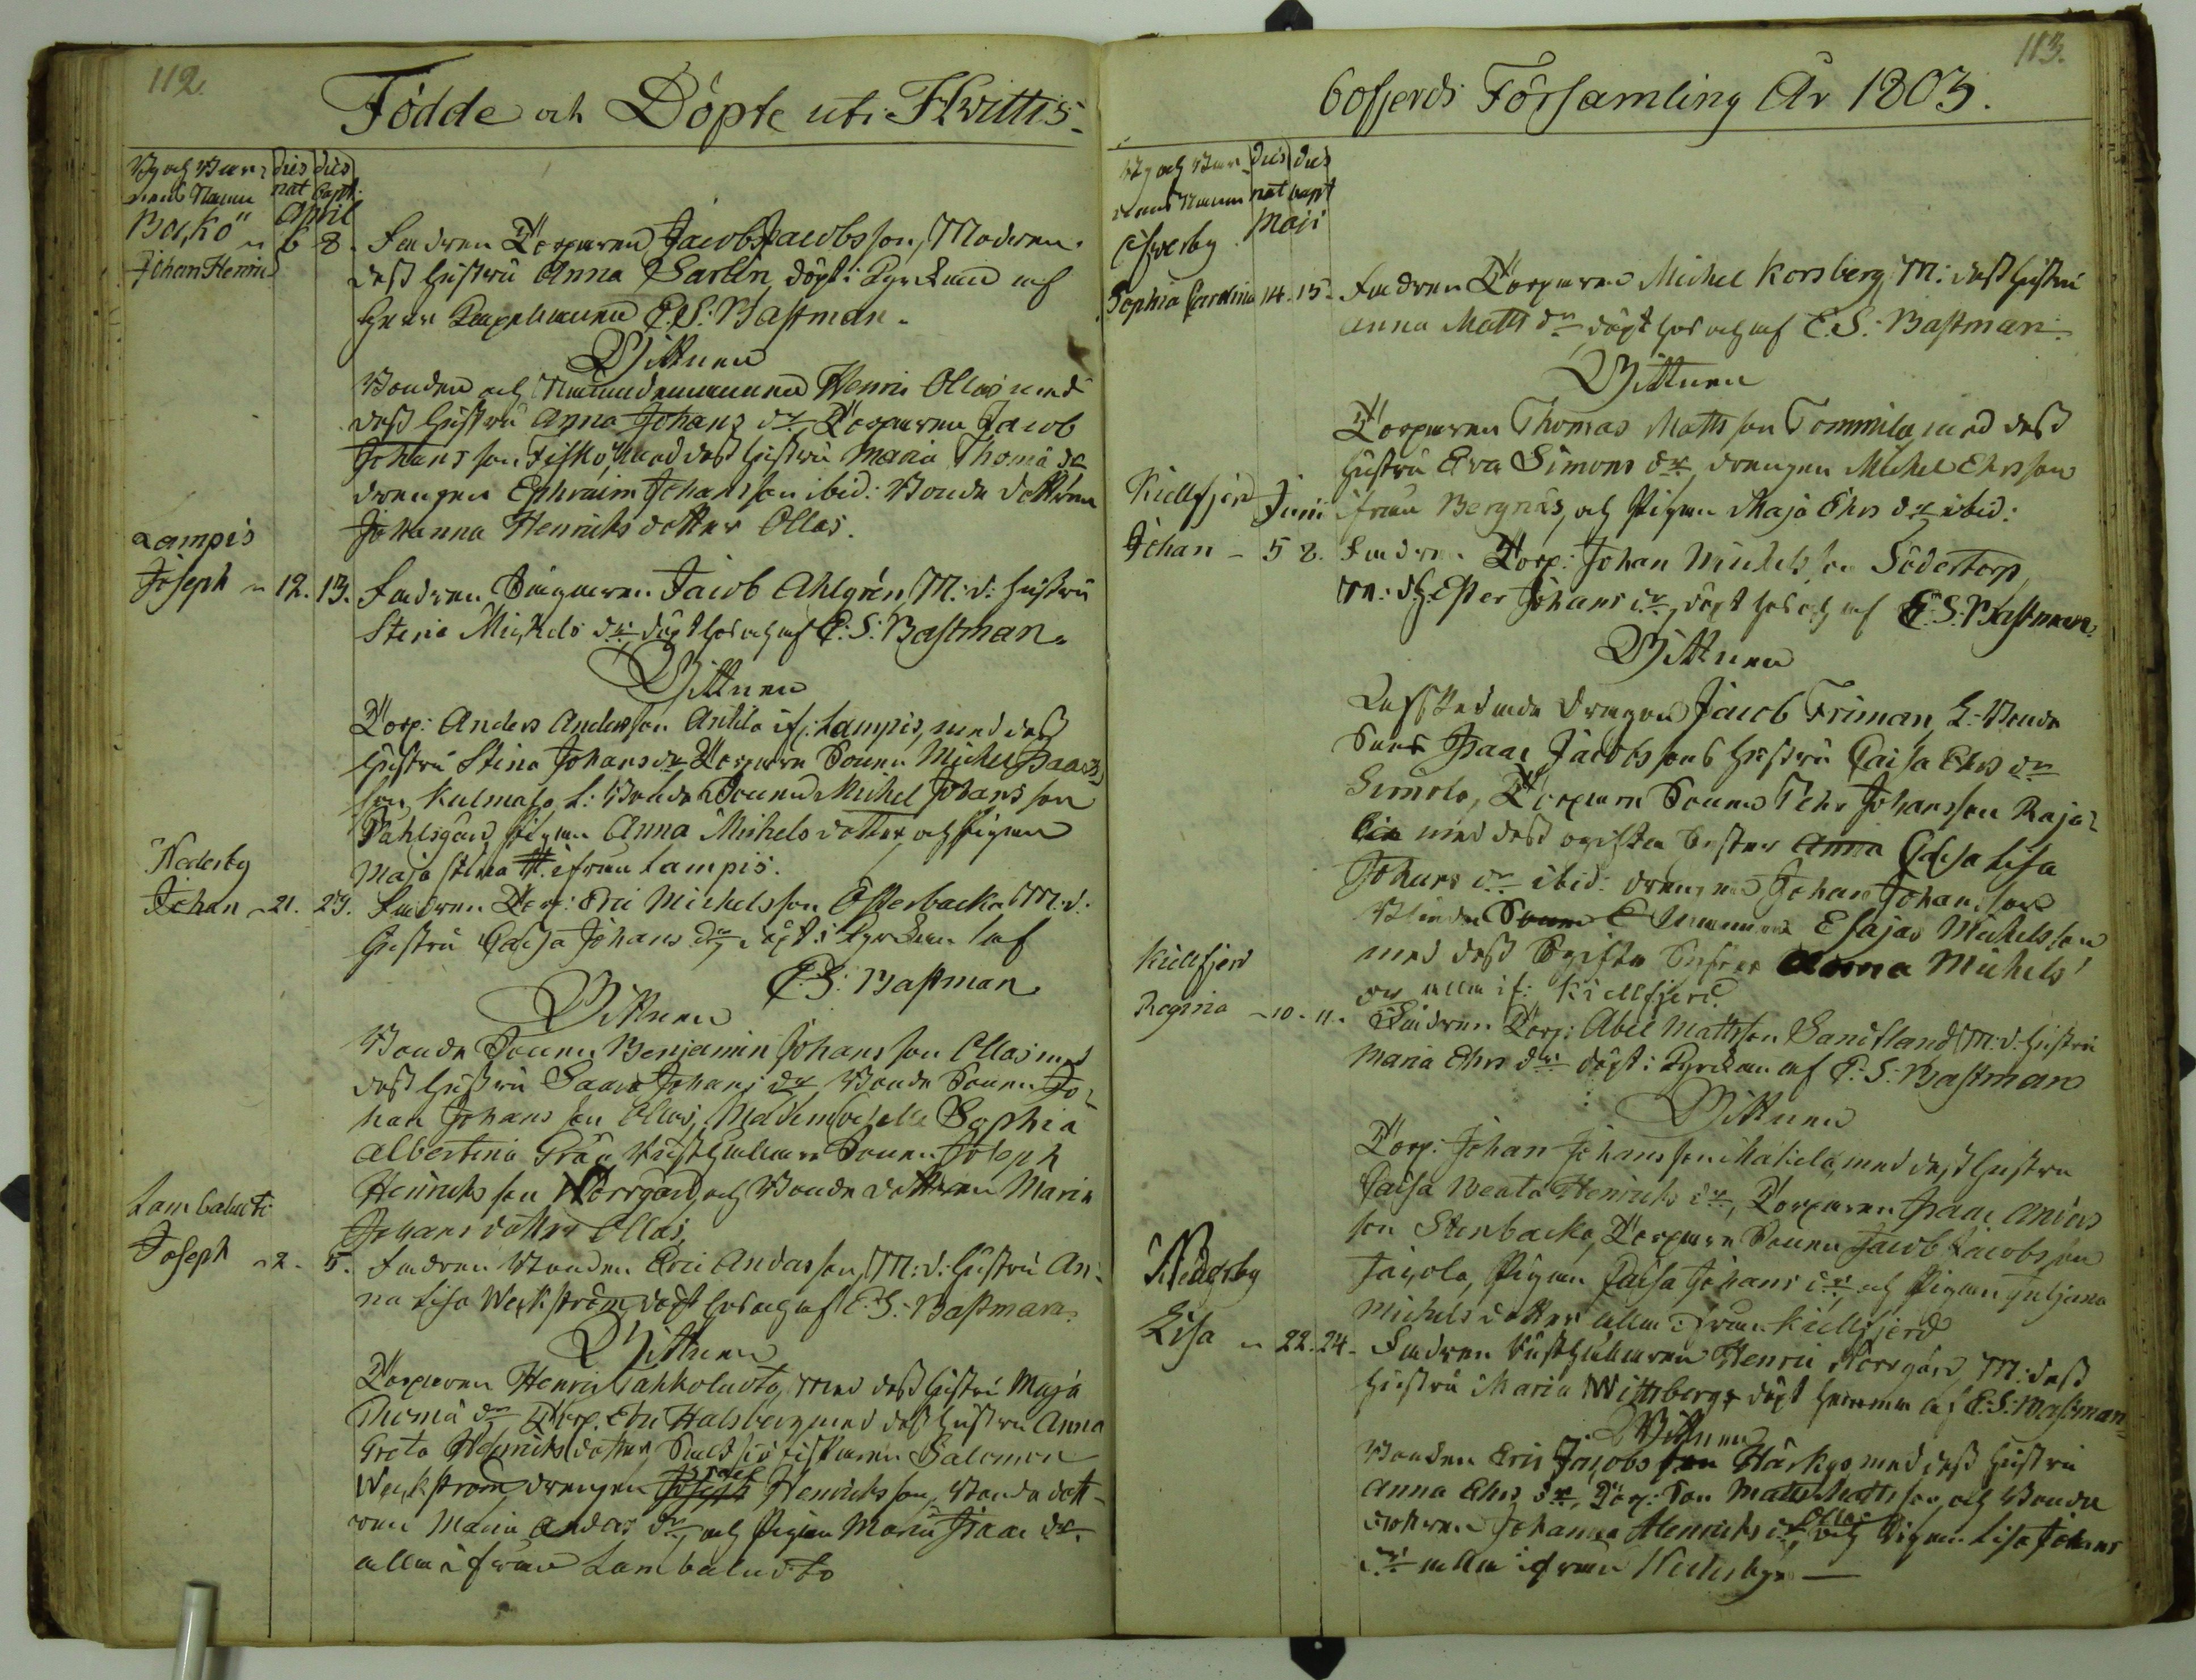 112.
Födde och Döpte uti Hvittis-
By och Bar-
nens Namn
dies nat
dies bapt.
April
Johan Henric
6 8. Fadren Torparen Jacob Jacobsson, Modren
dess hustru Anna Sarlin, döpt i Kyrckan af
Herr Capellanen E. S: Bastman.
Vittnen
Bonden och Nämndemannen Henric Ollas med
dess hustru Anna Johans dr Torparen Jacob
Johansson Fiskö, med dess hustru Maria Thomä dr
drengen Ephraim Johansson ibid: Bonde dottren
Johanna Henrichs dotter Ollas.
Lampis
Joseph 12. 13. Fadren Jacob Ahlgrén, M: d: hustru
Stina Michels dr döpt hos och af E: S: Bastman.
Vittnen
Torp: Anders Andersson Anttila if: Lampis, med dess
hustru Stina Johans dr Torpare Sonen Michel Isaacs
son Kulmala, L: Bonde Sonen Michel Johansson
Dahlsgård, pigan Anna Michels dotter, och pigan
Maja Stina ifrån Lampis.
Nederby
Johan 21. 23. Fadren Torp: Eric Michelsson Österbacka M: d:
hustru Caisa Johans dr döpt i Kyrckan af
E: S: Bastman.
Vittnen
Bonde Sonen Benjamin Johansson Ollas med
dess hustru Johans dr Bonde Sonen Jo-
han Johansson Ollas, Sophia
Albertina Sonen Joseph
Henrichsson Norrgård, och Bonde dottren Maria
Johans dotter Ollas.
Lambaluoto
Joseph 2. 5. Fadren Bonden Eric Andersson, M: d: hustru An-
na Lisa Weckström, döpt hos och af E: S: Bastman.
Vittnen
Torparen Henric Lahkoluoto, med dess hustru Maja
Thomä dr Torp. Ehr Halsberg med dess hustru Anna
Greta Henrichs dotter Salomon
Weckström, drengen Joseph Israel Henrichsson, Bonde dott-
ren Maria Anders dr, och pigan Maria Isaac dr
alla ifrån Lambaluoto
113.
bofjerds Församling År 1803.
By och Bar-
nens Namn
dies nat
dies bapt
Maji
Sophia Carolina 14. 15. Fadren Torparen Michel Korsberg, M: dess hustru
Anna Matts dr döpt hos och af E. S: Bastman.
Vittnen
Torparen Thomas Mattsson Tommila, med dess
hustru Eva Simons dr, drengen Michel Ehrsson
ifrån Bergnäs, och Pigan Maja Ehrs dr ibid:
Kiellfjerd Junii
Johan 5 8. Fadren Torp: Johan Michelsson Södertorp,
M: d: h: Ester Johans dr, döpt hos och af E. S. Bastman.
Vittnen
Dragon Jacob Friman, L: Bonde
Sons Isaac Jacobssons hustru Caisa Ehrs dr
Torpare Sonen Ehr Johansson Raja-
med dess ogifta Syster Anna Caisa Lisa
Johans dr ibid: drengen Johan Johansson
Esajas Michelsson
med dess ogifta Syster Anna Michels
dr alla if: Kiellfjerd.
Kiellfjerd
Regina 10. 11. Fadren Torp: Abel Mattsson Sandstland, M: d: hustru
Maria Ehrs dr döpt i Kyrckan af E: S: Bastman
Vittnen
Torp: Johan Johansson Mäkelä, med dess hustru
Caisa Beata Henrichs dr, Torparen Isaac Anders
son Stenbacka, Torpare Sonen Jacob Jacobsson
Pigan Caisa Johans dr, och Pigan Juljana
Michels dotter alla ifrån Kiellfjerd
Nederby
Lisa 22. 24. Fadren Henric Norrgård, M: dess
hustru Maria Wittberg, döpt hemma af E: S: Bastman
Vittnen
Bonden Eric Jacobsson Härkgo, med dess hustru
Anna Ehrs dr, Torp: Son Matts Mattsson, och Bonde
dottren Johanna Henrichs dr Ollas, och Pigan Lisa Johans
dr alla ifrån Nederby.